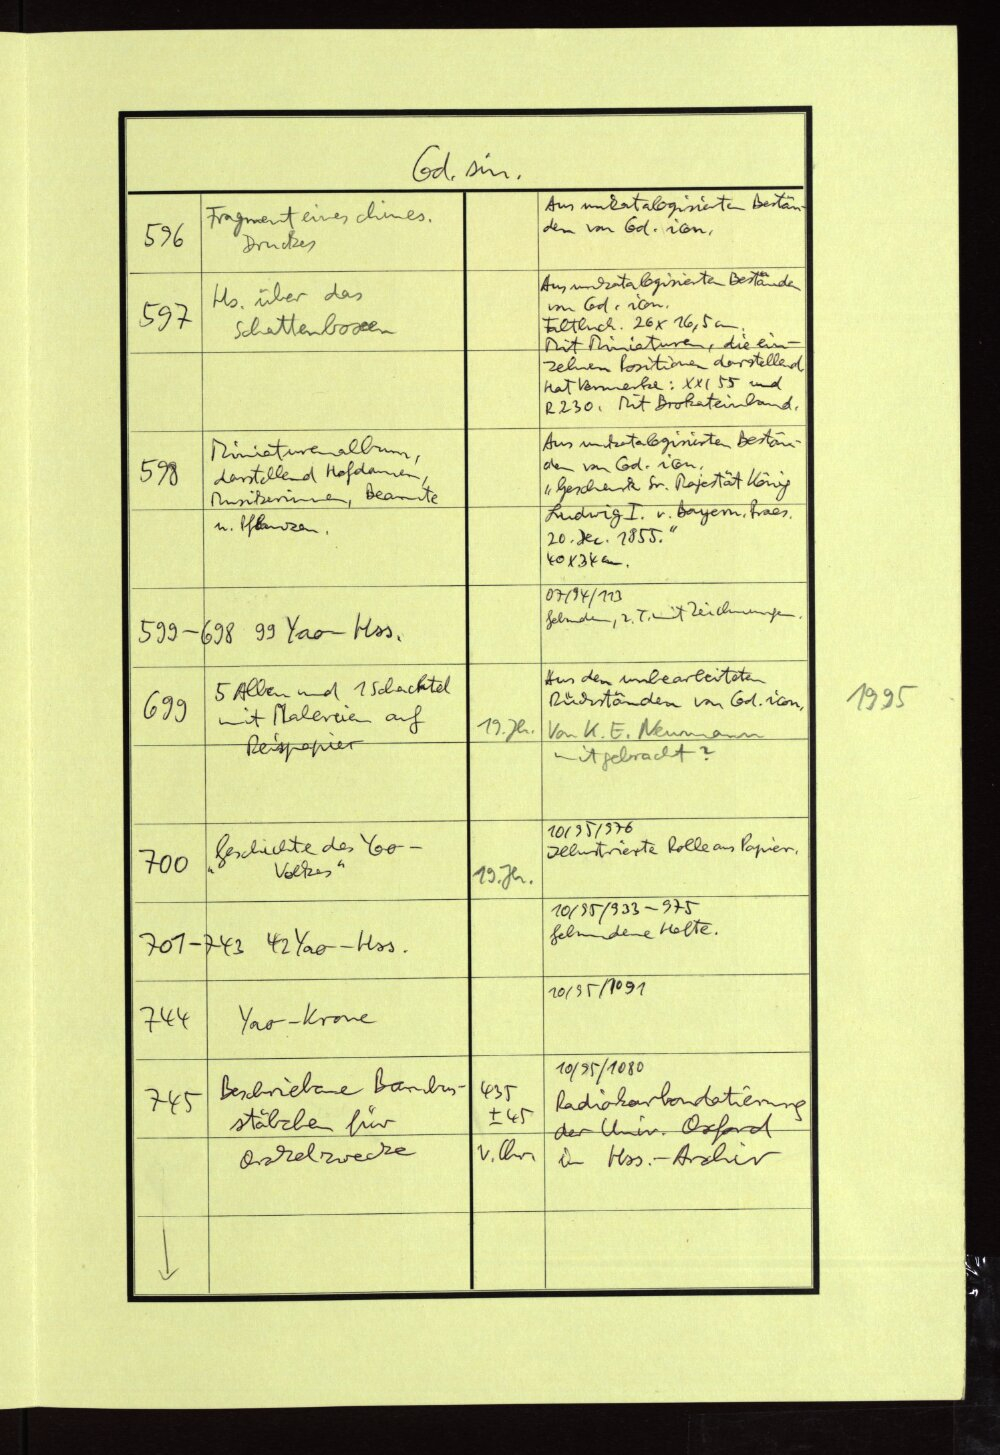 Cod. sin.
596
Fragment eines chines.
Druckes
Aus unkatalogisierten Bestän-
den von Cod. icon.
597
Hs. über das
Schattenboxen
Aus unkatalogisierten Beständen
von Cod. icon.
Faltbuch. 26 x 16,5 cm.
Mit Miniaturen, die ein-
zelnen Positionen darstellend
Hat Vermerke: XXI 55 und
R 230. Mit Brokateinband.
598
Miniaturenalbum,
darstellend Hofdamen,
Musikerinnen, Beamte
u. Pflanzen.
Aus unkatalogisierten Bestän-
den von Cod. icon.
"Geschenk Sr. Majestät König
Ludwig I. v. Bayern. Praes.
20. Dec. 1855."
40 x 34 cm.
599-698 99 Yao-Hss.
07/94/113
Gebunden, z. T. mit Zeichnungen.
699
5 Alben und 1 Schachtel
mit Malereien auf
Reispapier
19. Jh.
Aus den unbearbeiteten
Rückständen von Cod. icon.
Von K. E. Neumann
mitgebracht?
1995
700
"Geschichte des Yao-
Volkes"
19. Jh.
10/95/976
Illustrierte Rolle aus Papier.
701-743 42 Yao-Hss.
10/95/933-975
Gebundene Hefte.
744
Yao-Krone
10/95/1091
745
Beschriebene Bambus-
stäbchen für
Orakelzwecke
435
±45
v. Chr.
10/95/1080
Radiokarbondatierung
der Univ. Oxford
in Hss.-Archiv